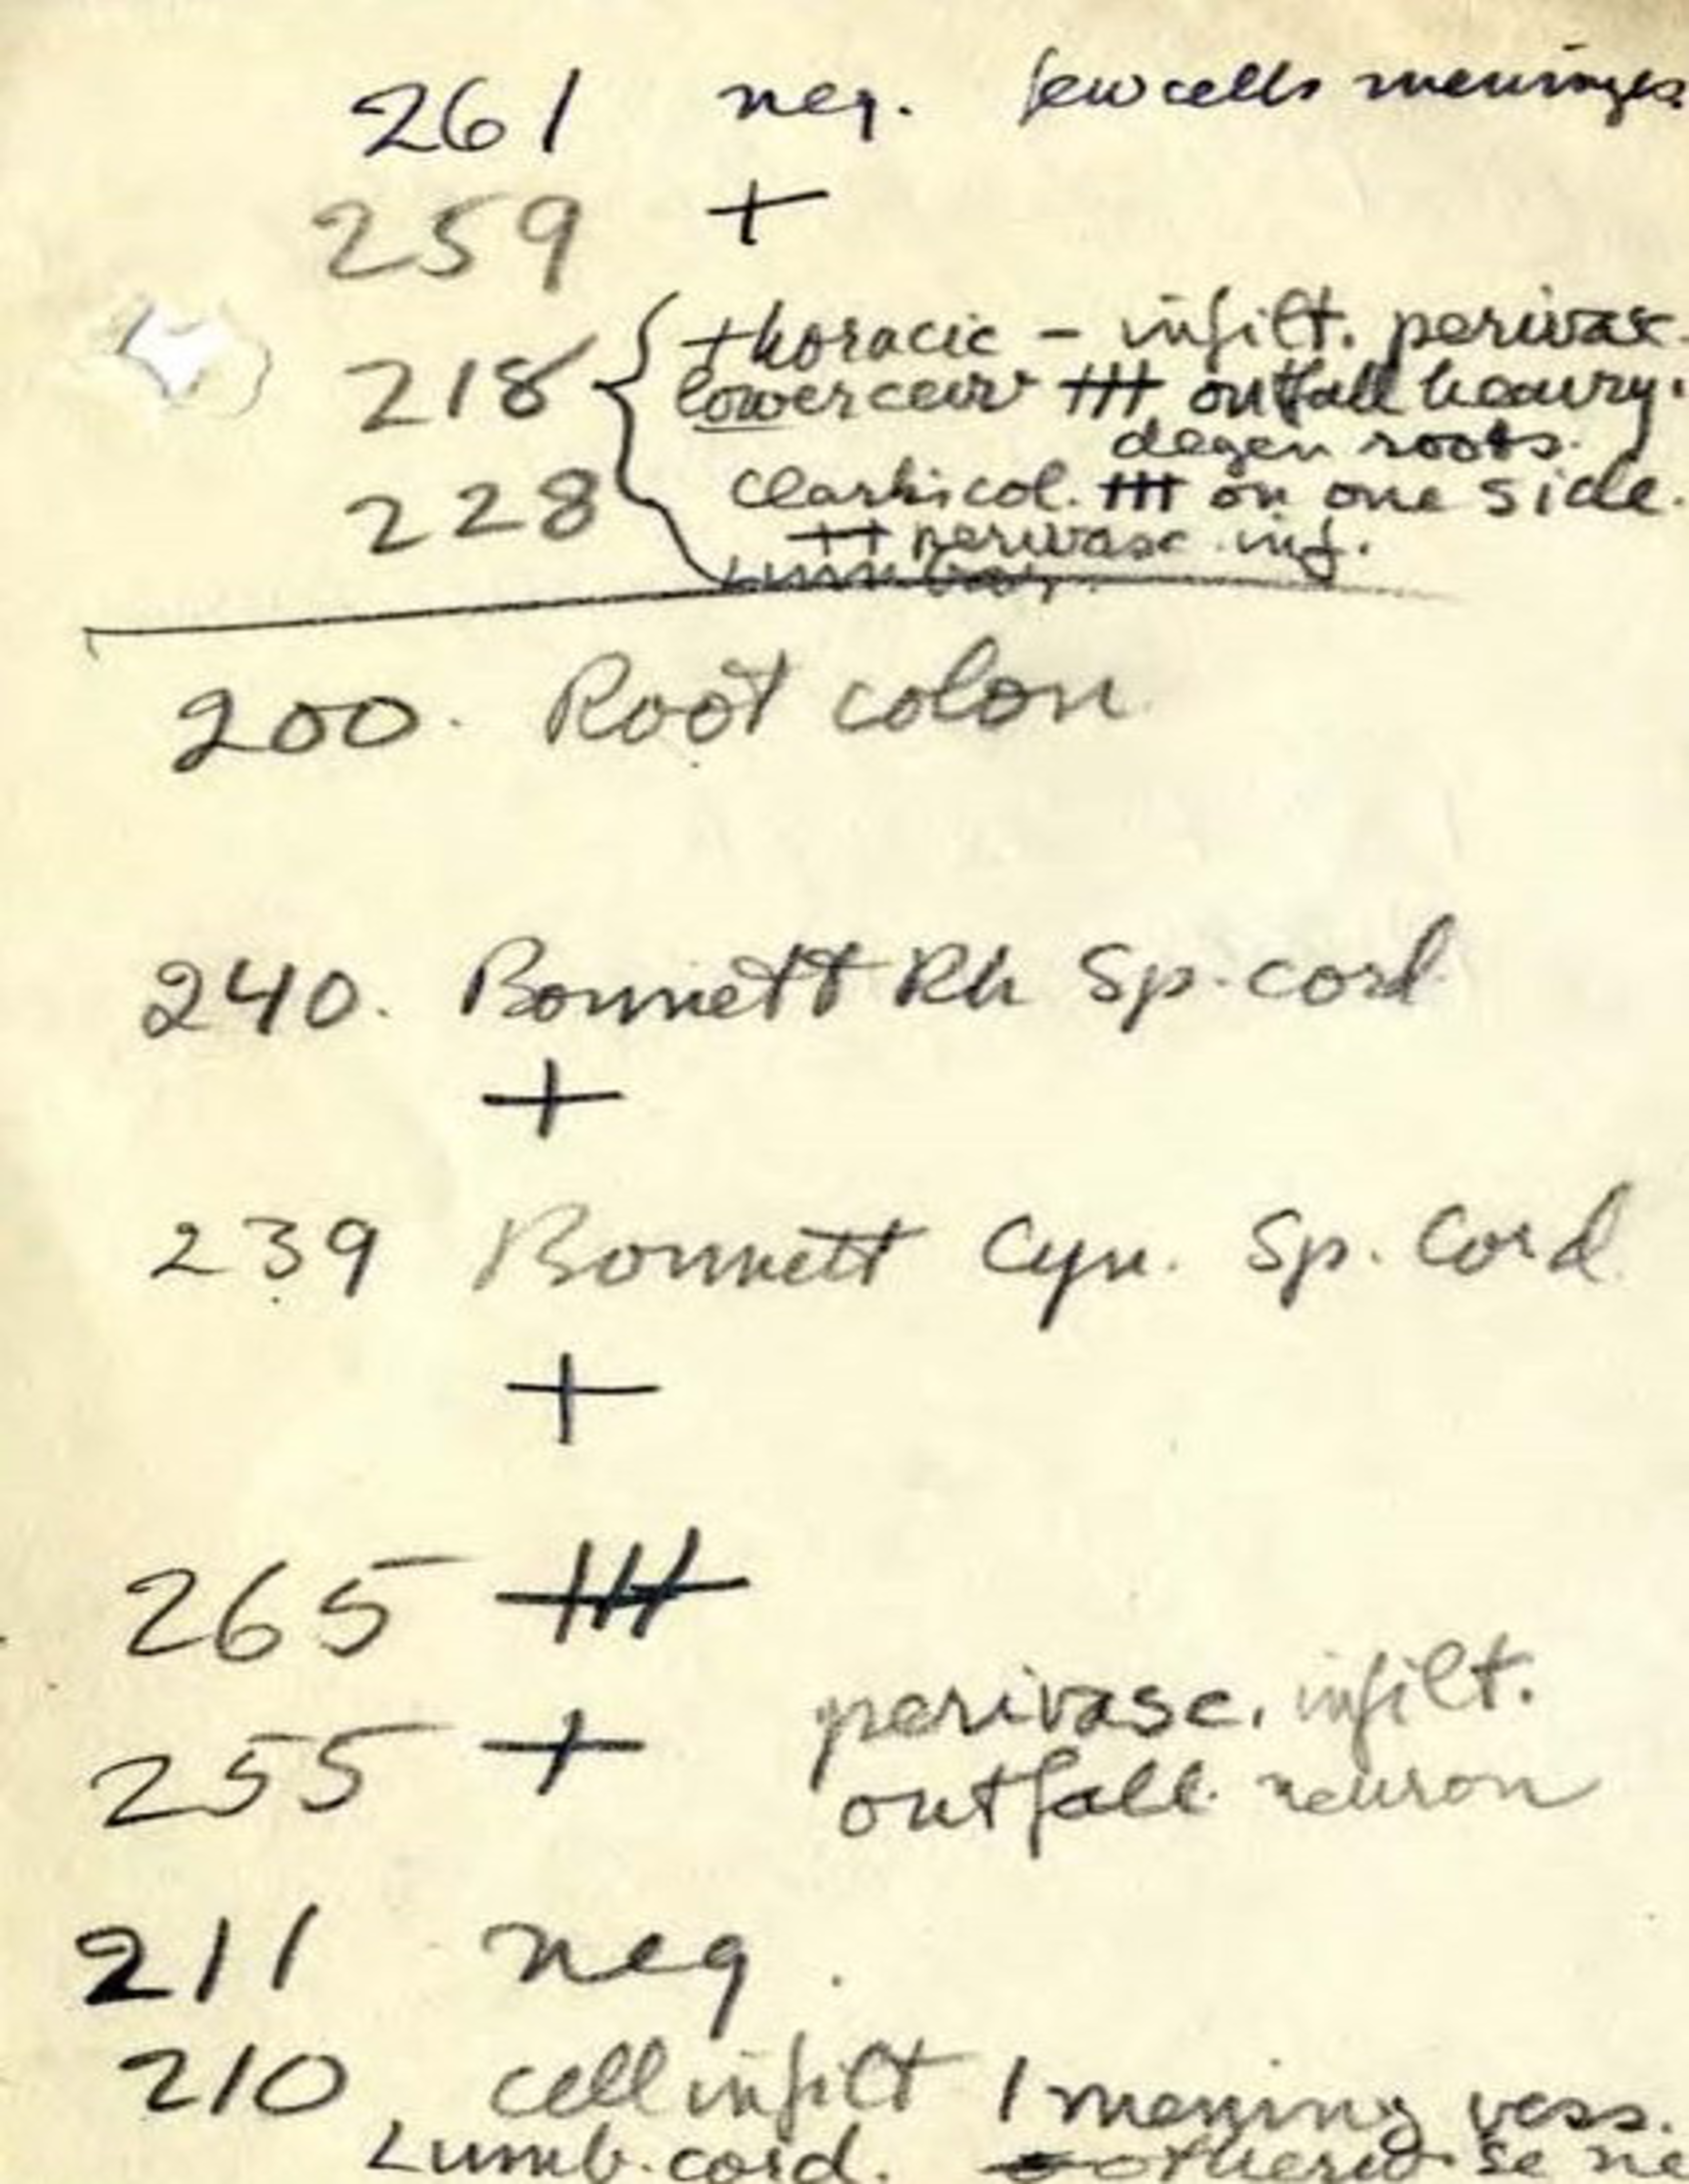 261 neg. few cells meninges
259 +
218 { thoracic – infilt. perivasc.
lower cerv +++ outfall heavy.
degen roots.
228 Clarks col. +++ on one side.
++ perivasc. inf.
Lumbar.
200. Root colon
240. Bonnett Rh Sp. cord
+
239 Bonnett Cyn. Sp. Cord
+
265 +++
255 + perivasc. infilt.
outfall neuron
211 neg.
210 cell infilt 1 mening vess.
Lumb. cord. otherwise ne